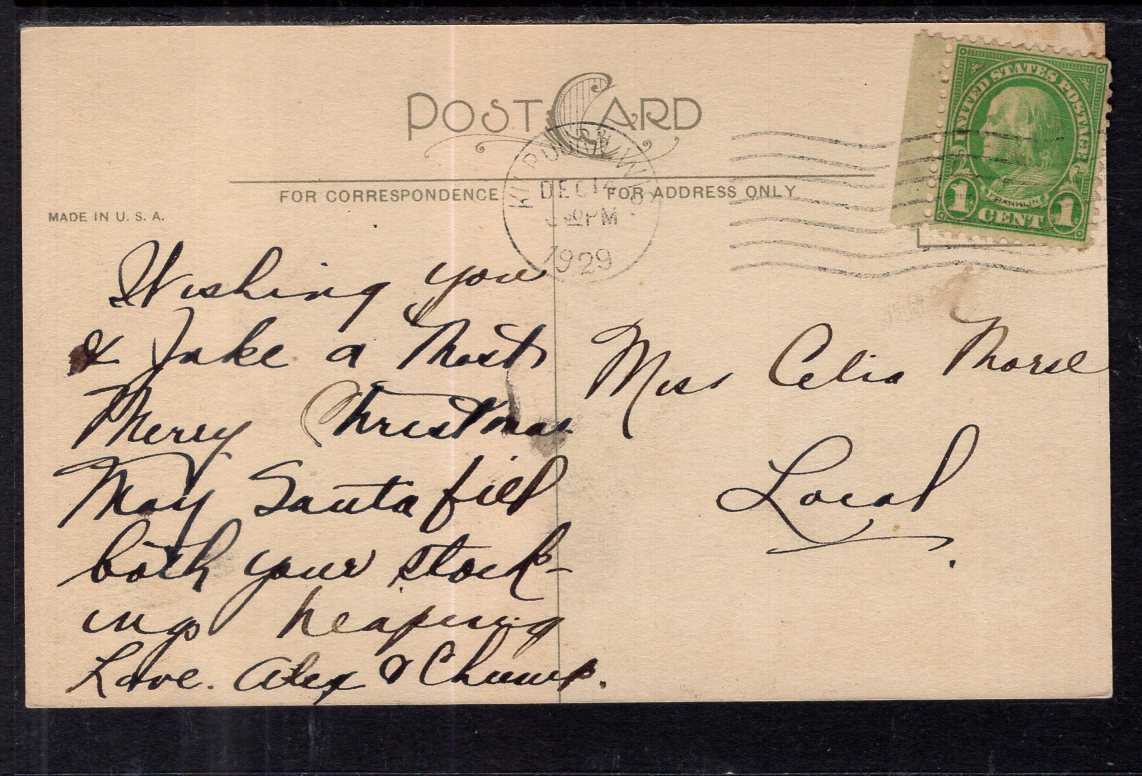 POST CARD
FOR CORRESPONDENCE
FOR ADDRESS ONLY
MADE IN U. S. A.
DEC
PM
1929
UNITED STATES POSTAGE
FRANKLIN
1 CENT 1
Wishing you
& Jake a Most
Merry Christmas
May Santa fill
both your stock-
ings heaping
Love. Alex &
Miss Celia Morse
Local.